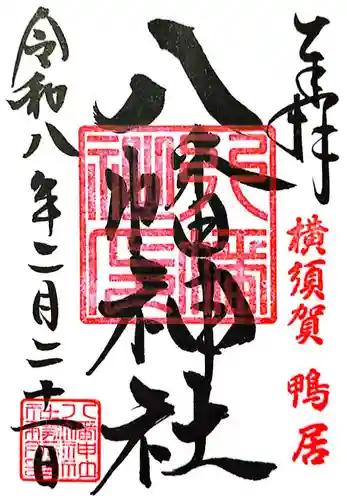 奉拝
横須賀 鴨居
八幡神社
令和八年二月二十一日